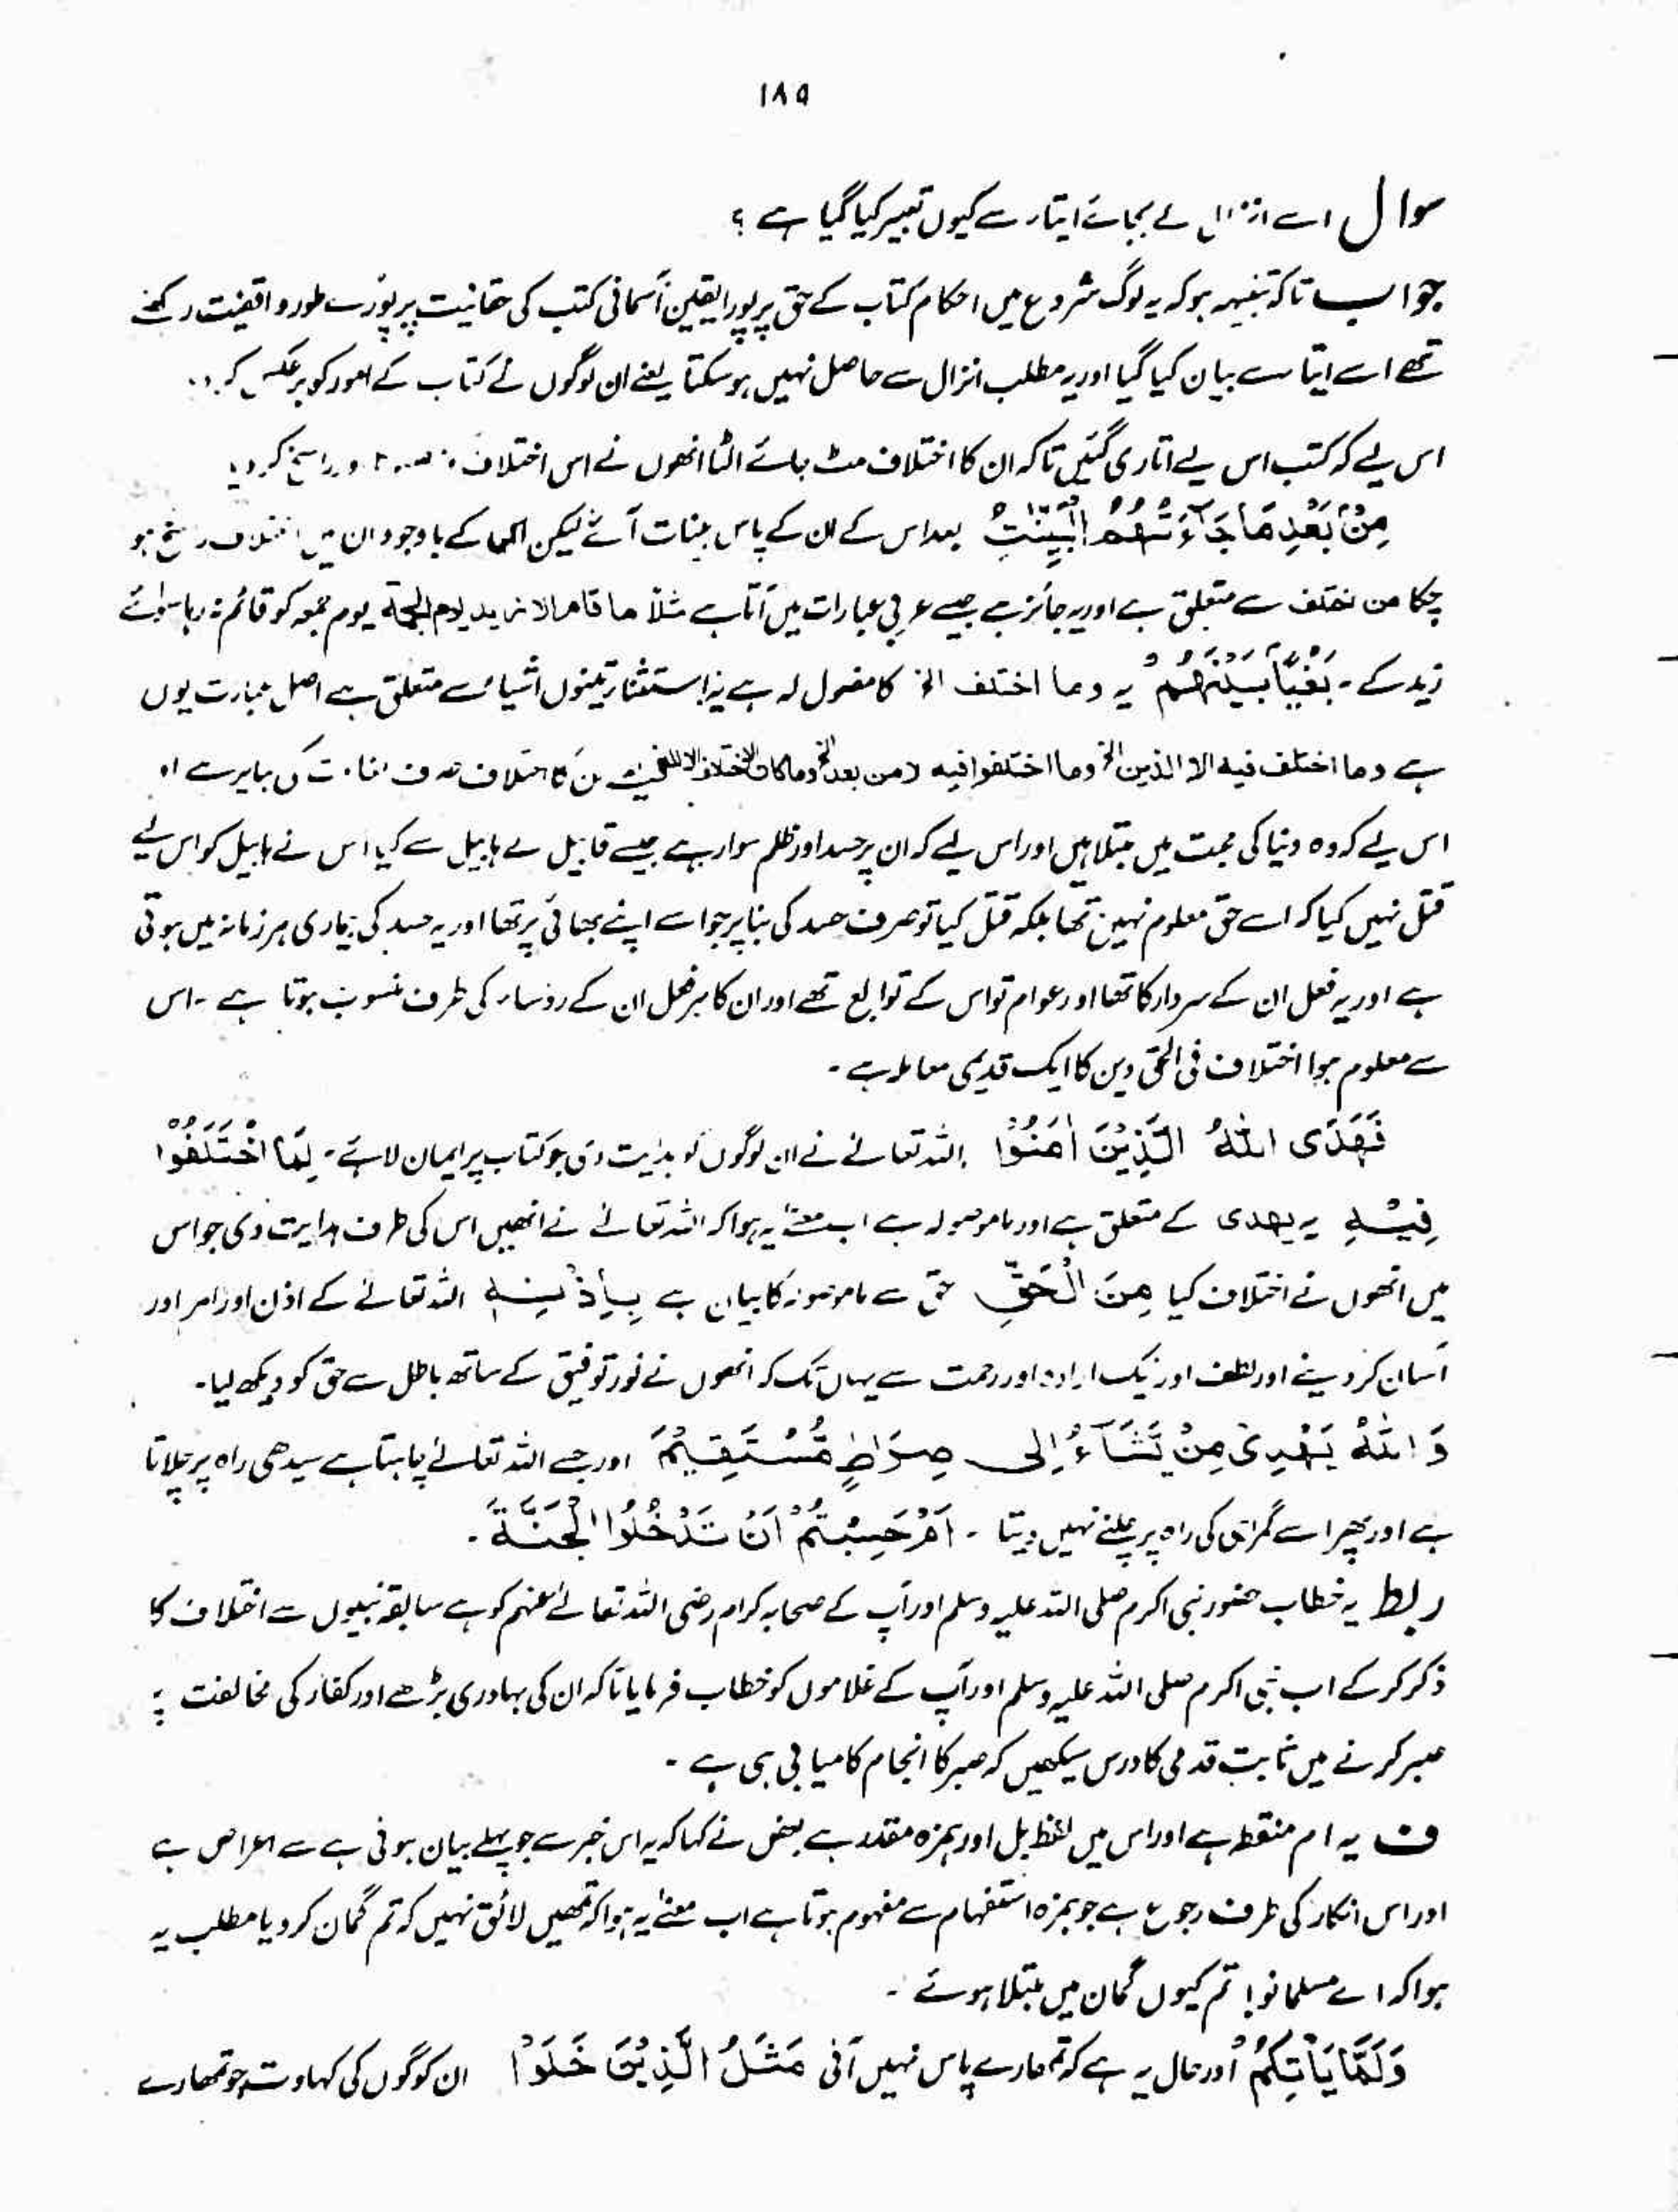 ۱۸۵
سوال اسے انزال کے بجائے ایتاء سے کیوں تعبیر کیا گیا ہے ؟
جواب تاکہ تنبیہہ ہو کہ یہ لوگ شروع میں احکام کتاب کے حق پر پورا یقین آسمانی کتب کی حقانیت پر پورے طور واقفیت رکھتے
تھے اسے ایتا سے بیان کیا گیا اور یہ مطلب انزال سے حاصل نہیں ہو سکتا یعنے ان لوگوں نے کتاب کے امور کو برعکس کر
اس لیے کہ کتب اس لیے اتاری گئیں تاکہ ان کا اختلاف مٹ جائے الٹا انھوں نے اس اختلاف راسخ کر دیا
مِنْۢ بَعْدِ مَا جَآءَتْهُمُ الْبَيِّنٰتُ بعد اس کے ان کے پاس بینات آئے لیکن اس کے باوجود ان میں اختلاف راسخ ہو
چکا من اختلف سے متعلق ہے اور یہ جائز ہے جیسے عربی عبارات میں آتا ہے مثلاً ما قام الا زید یوم الجمعة یوم جمعہ کو قائم نہ رہا سوائے
زید کے ۔ بَغْيًاۢ بَيْنَهُمْ یہ وما اختلف الخ کا مفعول لہ ہے یہ استثناء تینوں اشیاء سے متعلق ہے اصل عبارت یوں
ہے وما اختلف فیه الا الذین الخ وما اختلفوا فیه الا من بعد الخ وما کان الاختلاف الا للبغی ان کا اختلاف صرف بناپر ہے
اس لیے کہ وہ دنیا کی محبت میں مبتلا ہیں اور اس لیے کہ ان پر حسد اور ظلم سوار ہے جیسے قابیل نے ہابیل سے کیا اس نے ہابیل کو اس لیے
قتل نہیں کیا کہ اسے حق معلوم نہیں تھا بلکہ قتل کیا تو صرف حسد کی بنا پر جو اسے اپنے بھائی پر تھا اور یہ حسد کی بیماری ہر زمانہ میں ہوتی
ہے اور یہ فعل ان کے سردار کا تھا اور عوام تو اس کے توابع تھے اور ان کا ہر فعل ان کے روساء کی طرف منسوب ہوتا ہے ۔ اس
سے معلوم ہوا اختلاف فی الحق دین کا ایک قدیمی معاملہ ہے ۔
فَهَدَى اللهُ الَّذِيْنَ اٰمَنُوْا اللہ تعالے نے ان لوگوں کو ہدایت دی جو کتاب پر ایمان لائے ۔ لِمَا اخْتَلَفُوْا
فِيْهِ یہ یھدی کے متعلق ہے اور ما موصولہ ہے اب معنےٰ یہ ہوا کہ اللہ تعالےٰ نے انھیں اس کی طرف ہدایت دی جو اس
میں انھوں نے اختلاف کیا مِنَ الْحَقِّ حق سے ما موصولہ کا بیان ہے بِاِذْنِهٖ اللہ تعالےٰ کے اذن اور امر اور
آسان کر دینے اور لطف اور نیک ارادہ اور رحمت سے یہاں تک کہ انھوں نے نور توفیق کے ساتھ باطل سے حق کو دیکھ لیا۔
وَاللهُ يَهْدِىْ مَنْ يَّشَآءُ اِلٰى صِرَاطٍ مُّسْتَقِيْمٍ اور جسے اللہ تعالےٰ چاہتا ہے سیدھی راہ پر چلاتا
ہے اور پھر اسے گمراہی کی راہ پر چلنے نہیں دیتا ۔ اَمْ حَسِبْتُمْ اَنْ تَدْخُلُوا الْجَنَّةَ ۔
ربط یہ خطاب حضور نبی اکرم صلی اللہ علیہ وسلم اور آپ کے صحابہ کرام رضی اللہ تعالےٰ عنہم کو ہے سابقہ نبیوں سے اختلاف کا
ذکر کر کے اب نبی اکرم صلی اللہ علیہ وسلم اور آپ کے غلاموں کو خطاب فرمایا تاکہ ان کی بہادری بڑھے اور کفار کی مخالفت پہ
صبر کرنے میں ثابت قدمی کا درس سیکھیں کہ صبر کا انجام کامیابی ہی ہے ۔
ف یہ ام منقطعہ ہے اور اس میں لفظ بل اور ہمزہ مقدر ہے بعض نے کہا کہ یہ اس خبر سے جو پہلے بیان ہوئی ہے سے اعراض ہے
اور اس انکار کی طرف رجوع ہے جو ہمزہ استفہام سے مفہوم ہوتا ہے اب معنےٰ یہ ہوا کہ تمھیں لائق نہیں کہ تم گمان کرو یا مطلب یہ
ہوا کہ اے مسلمانو! تم کیوں گمان میں مبتلا ہوئے ۔
وَلَمَّا يَاْتِكُمْ اور حال یہ ہے کہ تمھارے پاس نہیں آئی مَثَلُ الَّذِيْنَ خَلَوْا ان لوگوں کی کہاوت جو تمھارے